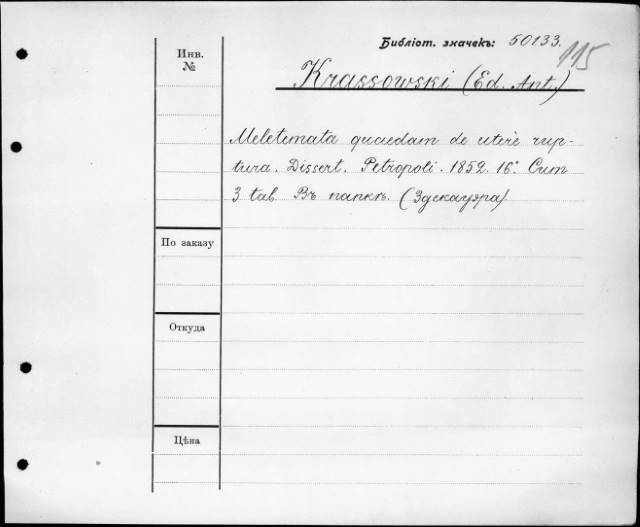 Библіот. значекъ: 50133.
115
Инв.
№
Krassowski (Ed. Ant.)
Meletemata quaedam de uteri rup-
tura. Dissert. Petropoli. 1852. 16°. Cum
3 tab. Въ папкѣ. (Здекауэра)
По заказу
Откуда
Цѣна